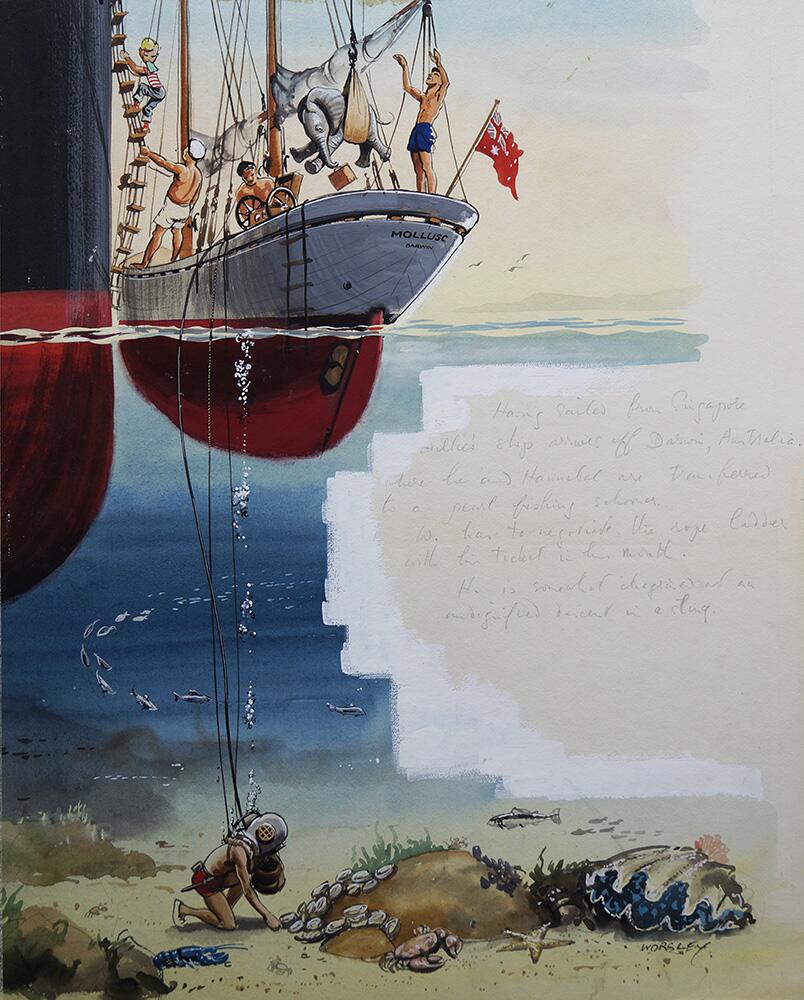 MOLLUSC
DARWIN
Having sailed from Singapore
Willie's ship arrives off Darwin, Australia.
where he and Hannibal are transferred
to a pearl fishing schooner.
W. has to negotiate the rope ladder
with his ticket in his mouth.
H. is somewhat chagrined at an
undignified descent in a sling.
WORSLEY.